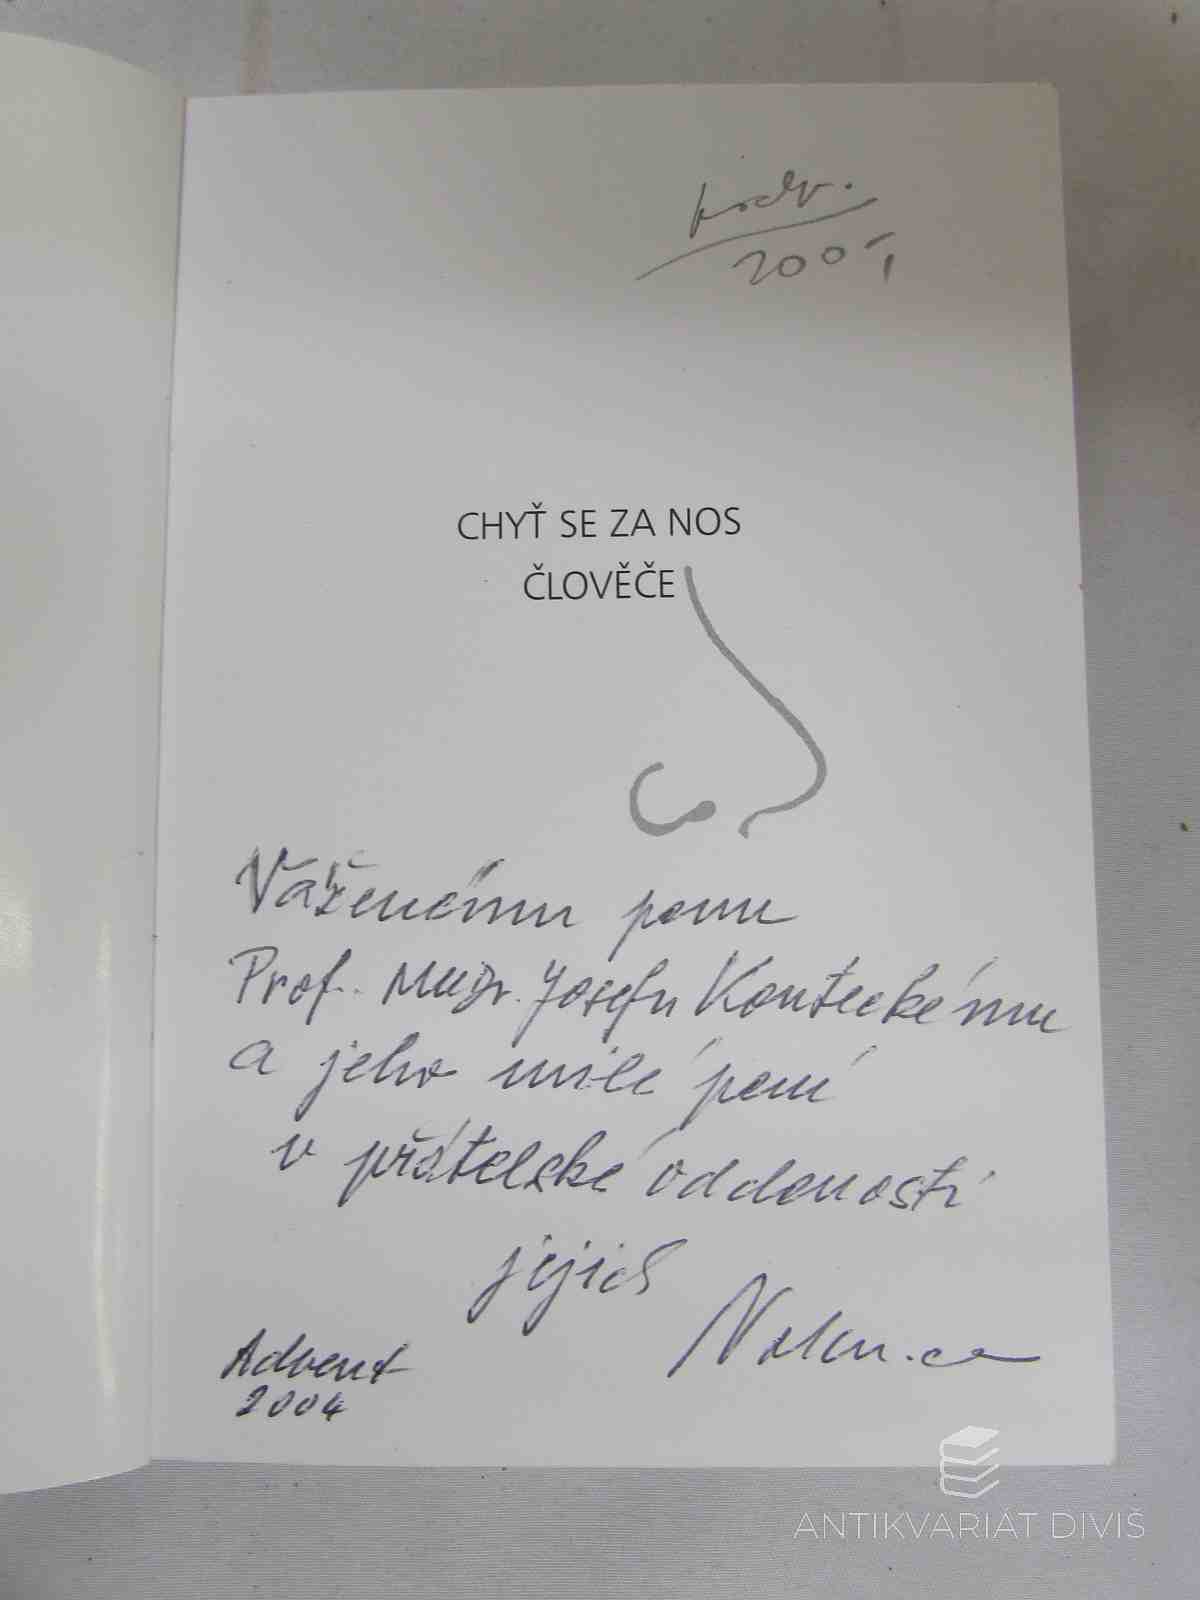 podp.
200,-
CHYŤ SE ZA NOS
ČLOVĚČE
Váženému panu
Prof. MUDr. Josefu Kouteckému
a jeho milé paní
v přátelské oddanosti
jejich
Advent
2004
ANTIKVARIÁT DIVIŠ